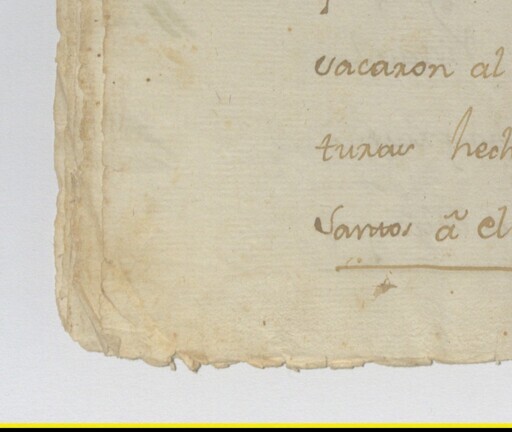 vacaron al
turas hech
Santos ã el